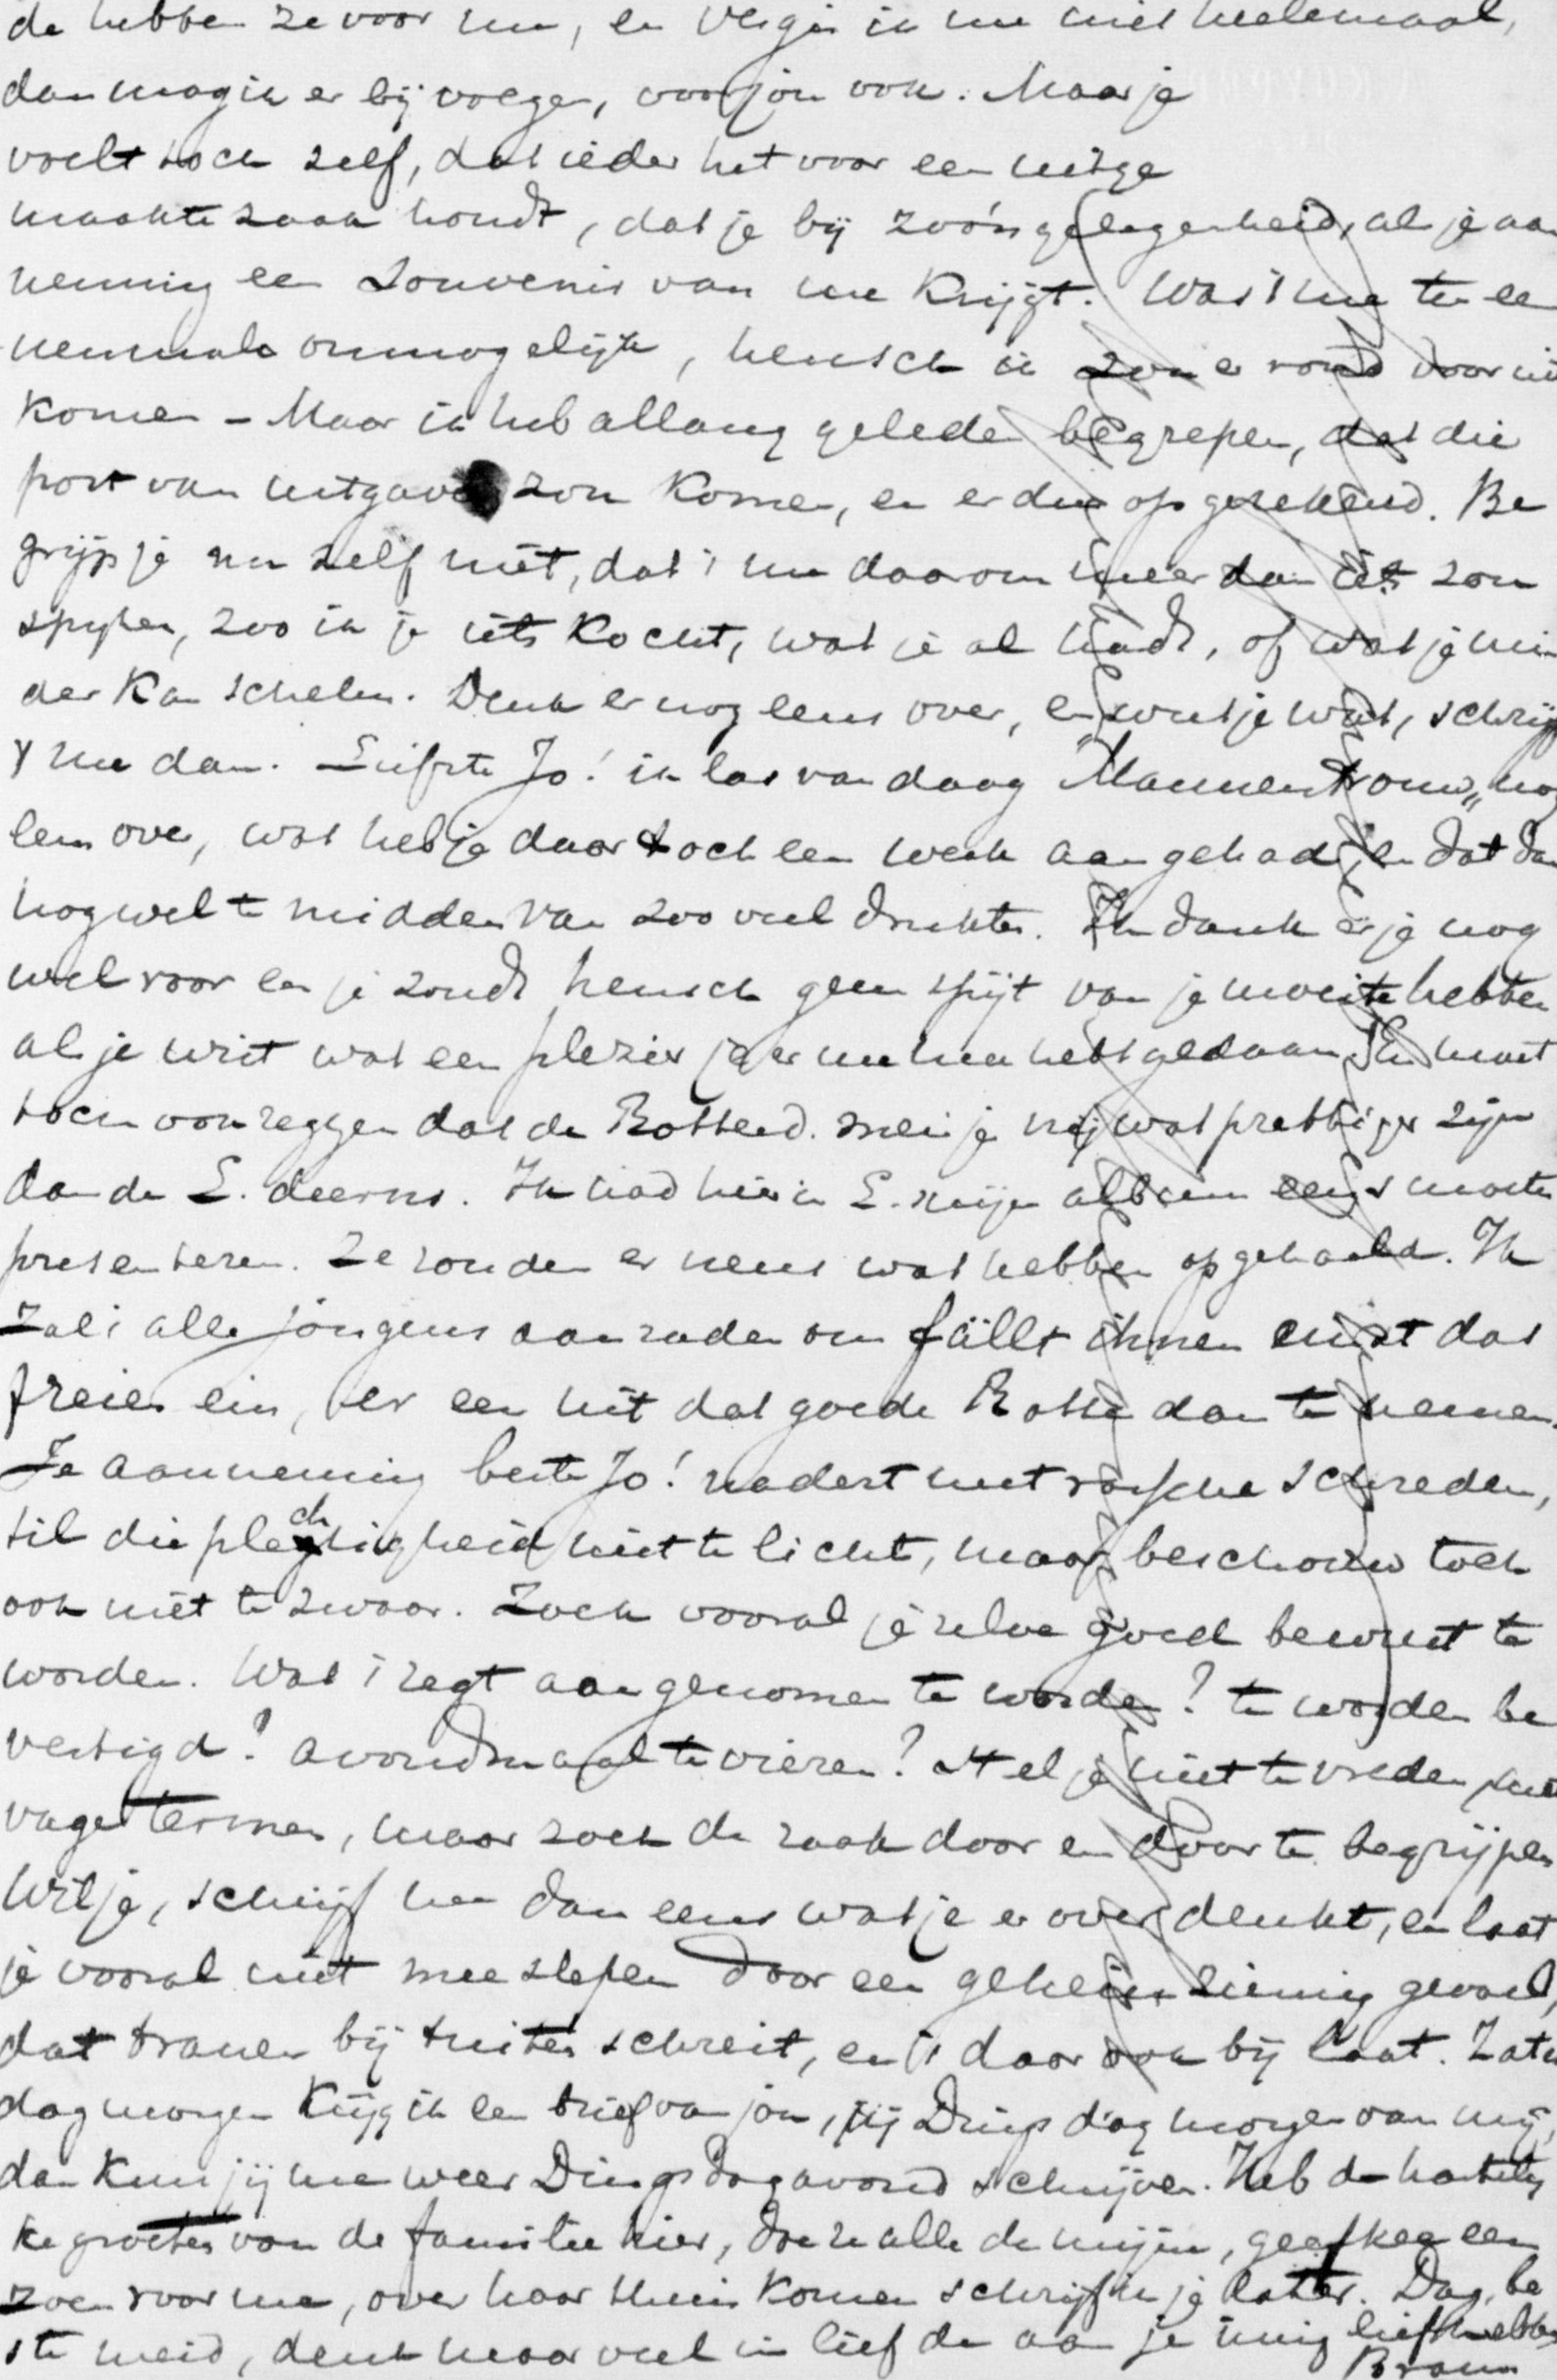 de hebben ze voor me, en vergis ik me niet heelemaal,
dan mag ik er bij voegen, voor jou ook. Maar je
voelt toch zelf, dat ieder het voor een uitge
maakte zaak houdt, dat je bij zoo'n gelegenheid, als je aan
neming een souvenir van me krijgt. Was 't me ten ee
nenmale onmogelijk, heusch ik zou er rond voor uit
komen - Maar ik heb allang geleden begrepen, dat die
post van uitgaven zou komen, en er dus op gerekend. Be
grijp je nu zelf niet, dat 't me daarom meer dan iets zou
spijten, zoo ik je iets kocht, wat je al hadt, of wat je min
der kan schelen. Denk er nog eens over, en weet je wat, schrijf
't me dan. Liefste Jo! ik las vandaag "Mannentrouw" nog
eens over, wat heb je daar toch een werk aan gehad, en dat dan
nog wel te midden van zoo veel drukte. Ik dank er je nog
wel voor en je zoudt heusch geen spijt van je moeite hebben
als je wist wat een plezier je er me mee hebt gedaan. Ik moet
toch ook zeggen dat de Rotterd. meisjes vrij wat prettiger zijn
dan de L. deerns. Ik had hier in L. mijn album eens moeten
presenteren. Ze zouden er neus wat hebben opgehaald. Ik
zal 't alle jongens aanraden om fällt ihnen einst das
freien ein, er een uit dat goede Rotte dam te nemen.
Je aanneming beste Jo! nadert met rassche schreden,
til die plechtigheid niet te licht, maar beschouw toch
ook niet te zwaar. Zoek vooral je zelve goed bewust te
worden. Wat 't zegt aangenomen te worden? te worden be
vestigd? avondmaal te vieren? Stel je niet tevreden met
vage termen, maar zoek de zaak door en door te begrijpen
Wil je, schrijf me dan eens wat je er over denkt, en laat
je vooral niet meeslepen door een geheimzinnig gevoel,
dat tranen bij tuiten schreit, en 't daar ook bij laat. Zater
dagmorgen krijg ik een brief van jou, jij Dingsdagmorgen van mij,
dan kun jij me weer Dingsdagavond schrijven. Heb de hartelij
ke groeten van de familie hier, doe ze alle de mijne, geef kee een
zoen voor me, over haar thuis komen schrijf ik je later. Dag, be
ste meid, denk maar veel in liefde aan je innig liefhebbenden
Bram